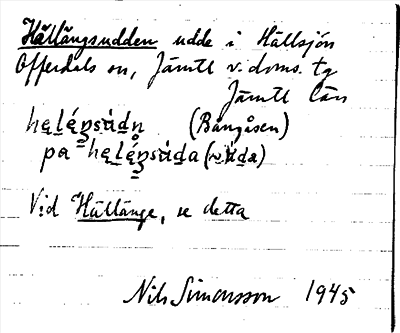 Hällängsudden udde i Hällsjön
Offerdals sn, Jämtl v. doms. tg
Jämtl län
(Bångåsen)
pa
Vid Hällänge, se detta
Nils Simonsson 1945